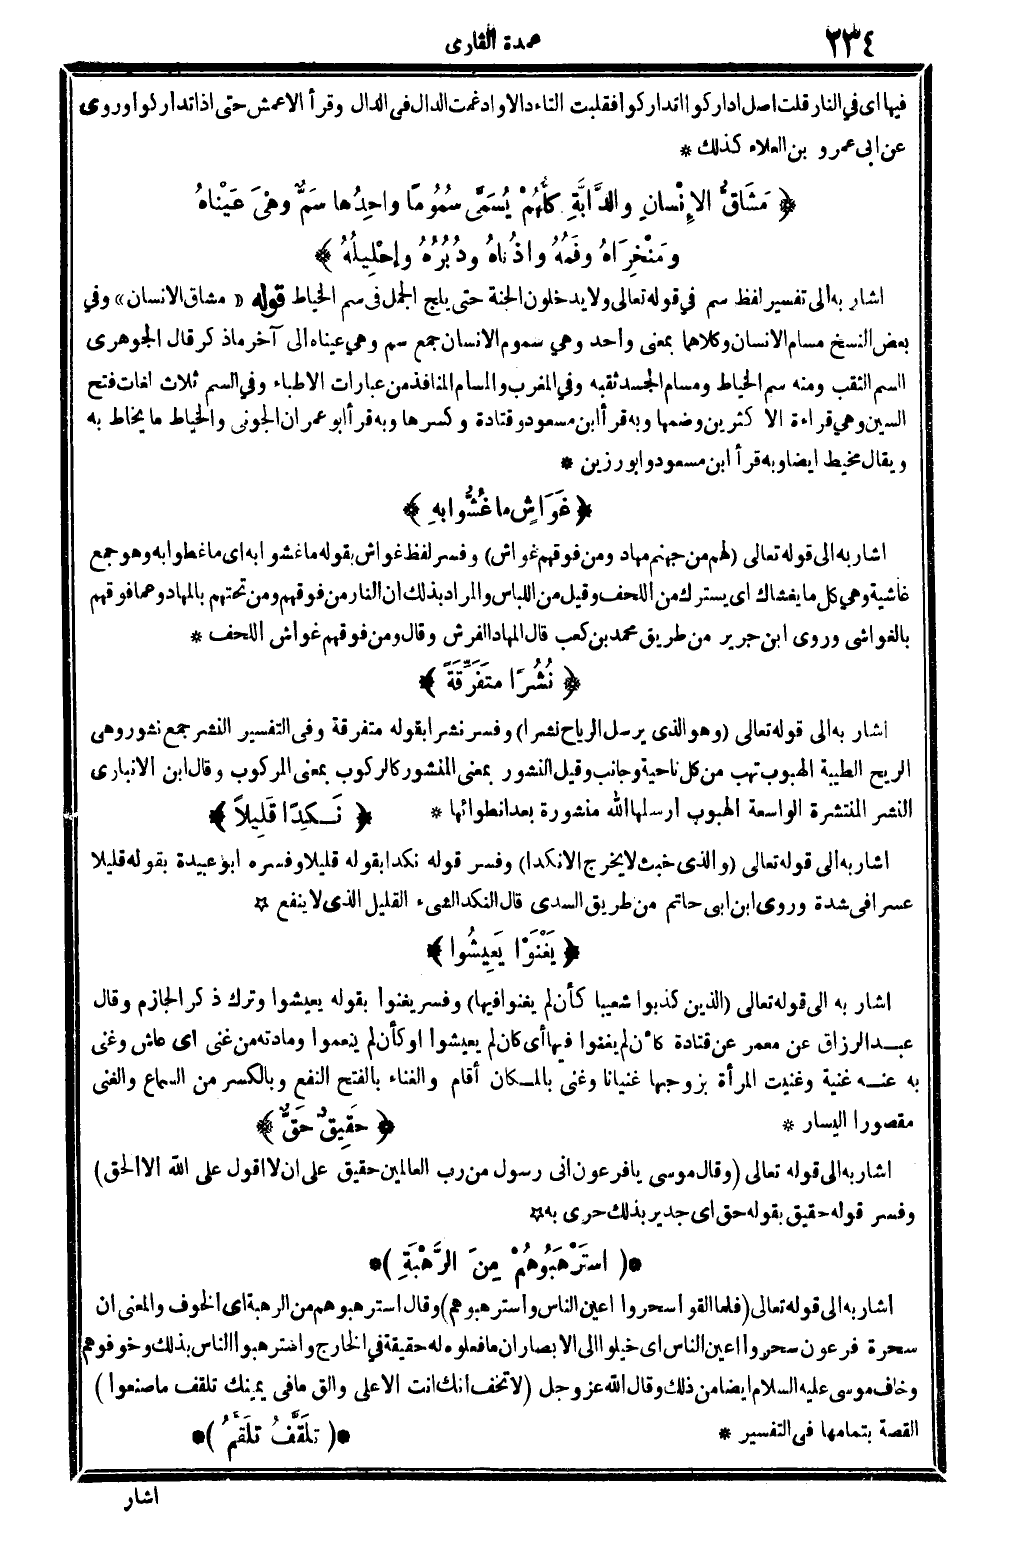 ٢٣٤
عمدة القارى
فيها اى فى النار قلت اصل اداركوا اتداركوا فقلبت التاء دالا وادغمت الدال فى الدال وقرأ الاعمش حتى اذا تداركوا وروى
عن ابى عمرو بن العلاء كذلك *
﴿ مَشَاقُّ الإِنْسانِ والدَّابَّةِ كلُّهُمْ يُسَمَّى سُمُومًا واحِدُها سَمٌّ وهْىَ عَيْناهُ
ومَنْخِرَاهُ وفَمُهُ وأُذُناهُ ودُبُرُهُ وإحْلِيلُهُ ﴾
اشار به الى تفسير لفظ سم فى قوله تعالى ولا يدخلون الجنة حتى يلج الجمل فى سم الخياط قوله « مشاق الانسان» وفي
بعض النسخ مسام الانسان وكلاهما بمعنى واحد وهي سموم الانسان جمع سم وهي عيناه الى آخر ماذكر قال الجوهرى
السم الثقب ومنه سم الخياط ومسام الجسد ثقبه وفي المغرب والمسام المنافذ من عبارات الاطباء وفي السم ثلاث لغات فتح
السين وهي قراءة الاكثرين وضمها وبه قرأ ابن مسعود وقتادة وكسرها وبه قرأ ابو عمران الجونى والخياط ما يخاط به
ويقال مخيط ايضا وبه قرأ ابن مسعود وابو رزين *
﴿ غَوَاشٍ ما غُشُّوا بهِ ﴾
اشار به الى قوله تعالى (لهم من جهنم مهاد ومن فوقهم غواش) وفسر لفظ غواش بقوله ما غشوا به اى ما غطوا به وهو جمع
غاشية وهي كل ما يغشاك اى يسترك من اللحف وقيل من اللباس والمراد بذلك ان النار من فوقهم ومن تحتهم بالمهاد وعما فوقهم
بالغواشى وروى ابن جرير من طريق محمد بن كعب قال المهاد الفرش وقال ومن فوقهم غواش اللحف *
﴿ نُشُرًا متَفَرِّقَةً ﴾
اشار به الى قوله تعالى (وهو الذى يرسل الرياح نشرا) وفسر نشرا بقوله متفرقة وفى التفسير النشر جمع نشور وهى
الريح الطيبة الهبوب تهب من كل ناحية وجانب وقيل النشور بمعنى المنشور كالركوب بمعنى المركوب وقال ابن الانبارى
النشر المنتشرة الواسعة الهبوب ارسلها الله منشورة بعد انطوائها * ﴿ نَكِدًا قَلِيلاً ﴾
اشار به الى قوله تعالى (والذى خبث لا يخرج الا نكدا) وفسر قوله نكدا بقوله قليلا وفسره ابو عبيدة بقوله قليلا
عسرا فى شدة وروى ابن ابى حاتم من طريق السدى قال النكد الشىء القليل الذى لا ينفع ☆
﴿ يَغْنَوْا يَعِيشُوا ﴾
اشار به الى قوله تعالى (الذين كذبوا شعيبا كأن لم يغنوا فيها) وفسر يغنوا بقوله يعيشوا وترك ذكر الجازم وقال
عبد الرزاق عن معمر عن قتادة كأن لم يغنوا فيها أى كان لم يعيشوا او كأن لم ينعموا ومادته من غنى اى عاش وغنى
به عنه غنية وغنيت المرأة بزوجها غنيانا وغنى بالمكان أقام والغناء بالفتح النفع وبالكسر من السماع والغنى
مقصورا اليسار * ﴿ حَقِيقٌ حَقٌّ ﴾
اشار به الى قوله تعالى (وقال موسى يا فرعون انى رسول من رب العالمين حقيق على ان لا اقول على الله الا الحق)
وفسر قوله حقيق بقوله حق اى جدير بذلك حرى به ☆
*( استَرْهَبُوهُمْ مِنَ الرَّهْبَةِ )*
اشار به الى قوله تعالى (فلما القوا سحروا اعين الناس واسترهبوهم) وقال استرهبوهم من الرهبة اى الخوف والمعنى ان
سحرة فرعون سحروا اعين الناس اى خيلوا الى الابصار ان ما فعلوه له حقيقة فى الخارج واسترهبوا الناس بذلك وخوفوهم
وخاف موسى عليه السلام ايضا من ذلك وقال الله عز وجل (لا تخف انك انت الاعلى والق مافى يمينك تلقف ما صنعوا)
القصة بتمامها فى التفسير * *( تَلَقَّفُ تَلَقَّمُ )*
اشار